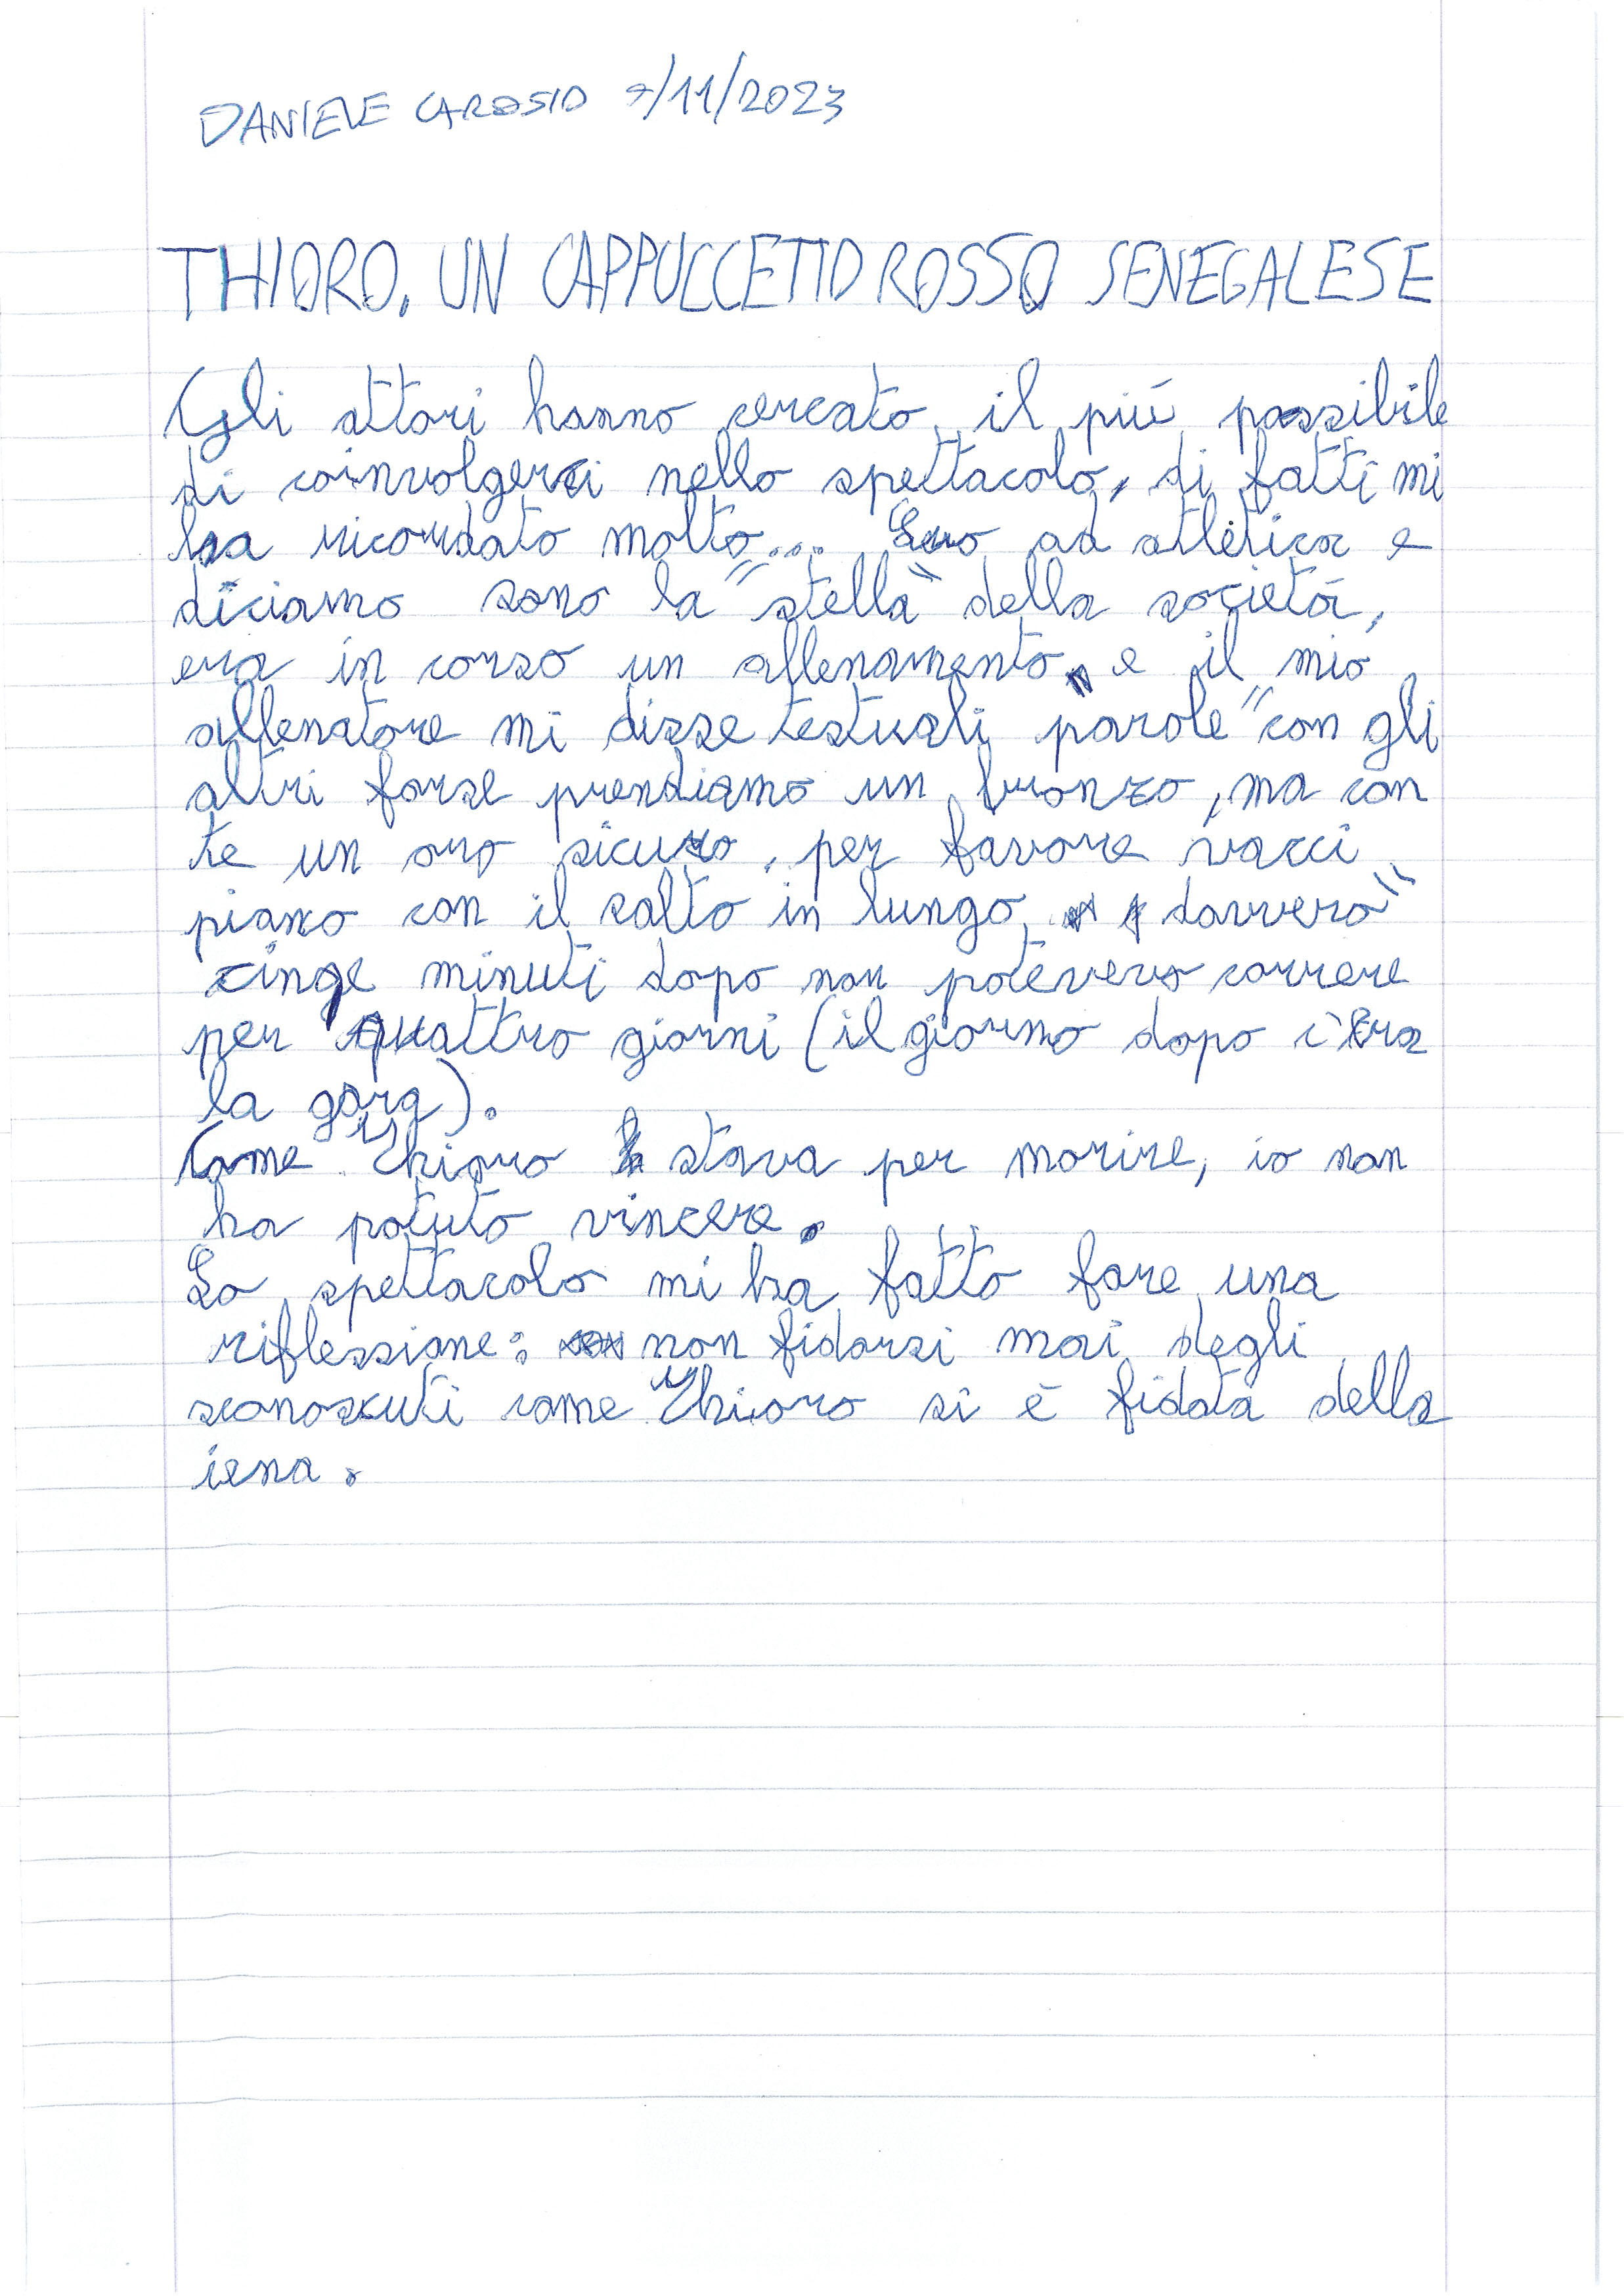 DANIELE CAROSIO 7/11/2023
THIORO, UN CAPPUCCETTO ROSSO SENEGALESE
Gli attori hanno cercato il più possibile
di coinvolgerci nello spettacolo, di fatti mi
ha ricordato molto... Ero ad atletica e
diciamo sono la "stella" della società,
era in corso un allenamento e il mio
allenatore mi disse testuali parole "con gli
altri forse prendiamo un bronzo, ma con
te un oro sicuro, per favore vacci
piano con il salto in lungo, davvero"
cinqe minuti dopo non potevevo correre
per quattro giorni (il giorno dopo c'era
la gara).
Come Thioro stava per morire, io non
ho potuto vincere.
Lo spettacolo mi ha fatto fare una
riflessione: non fidarsi mai degli
sconoscuti come Thioro si è fidata della
iena.